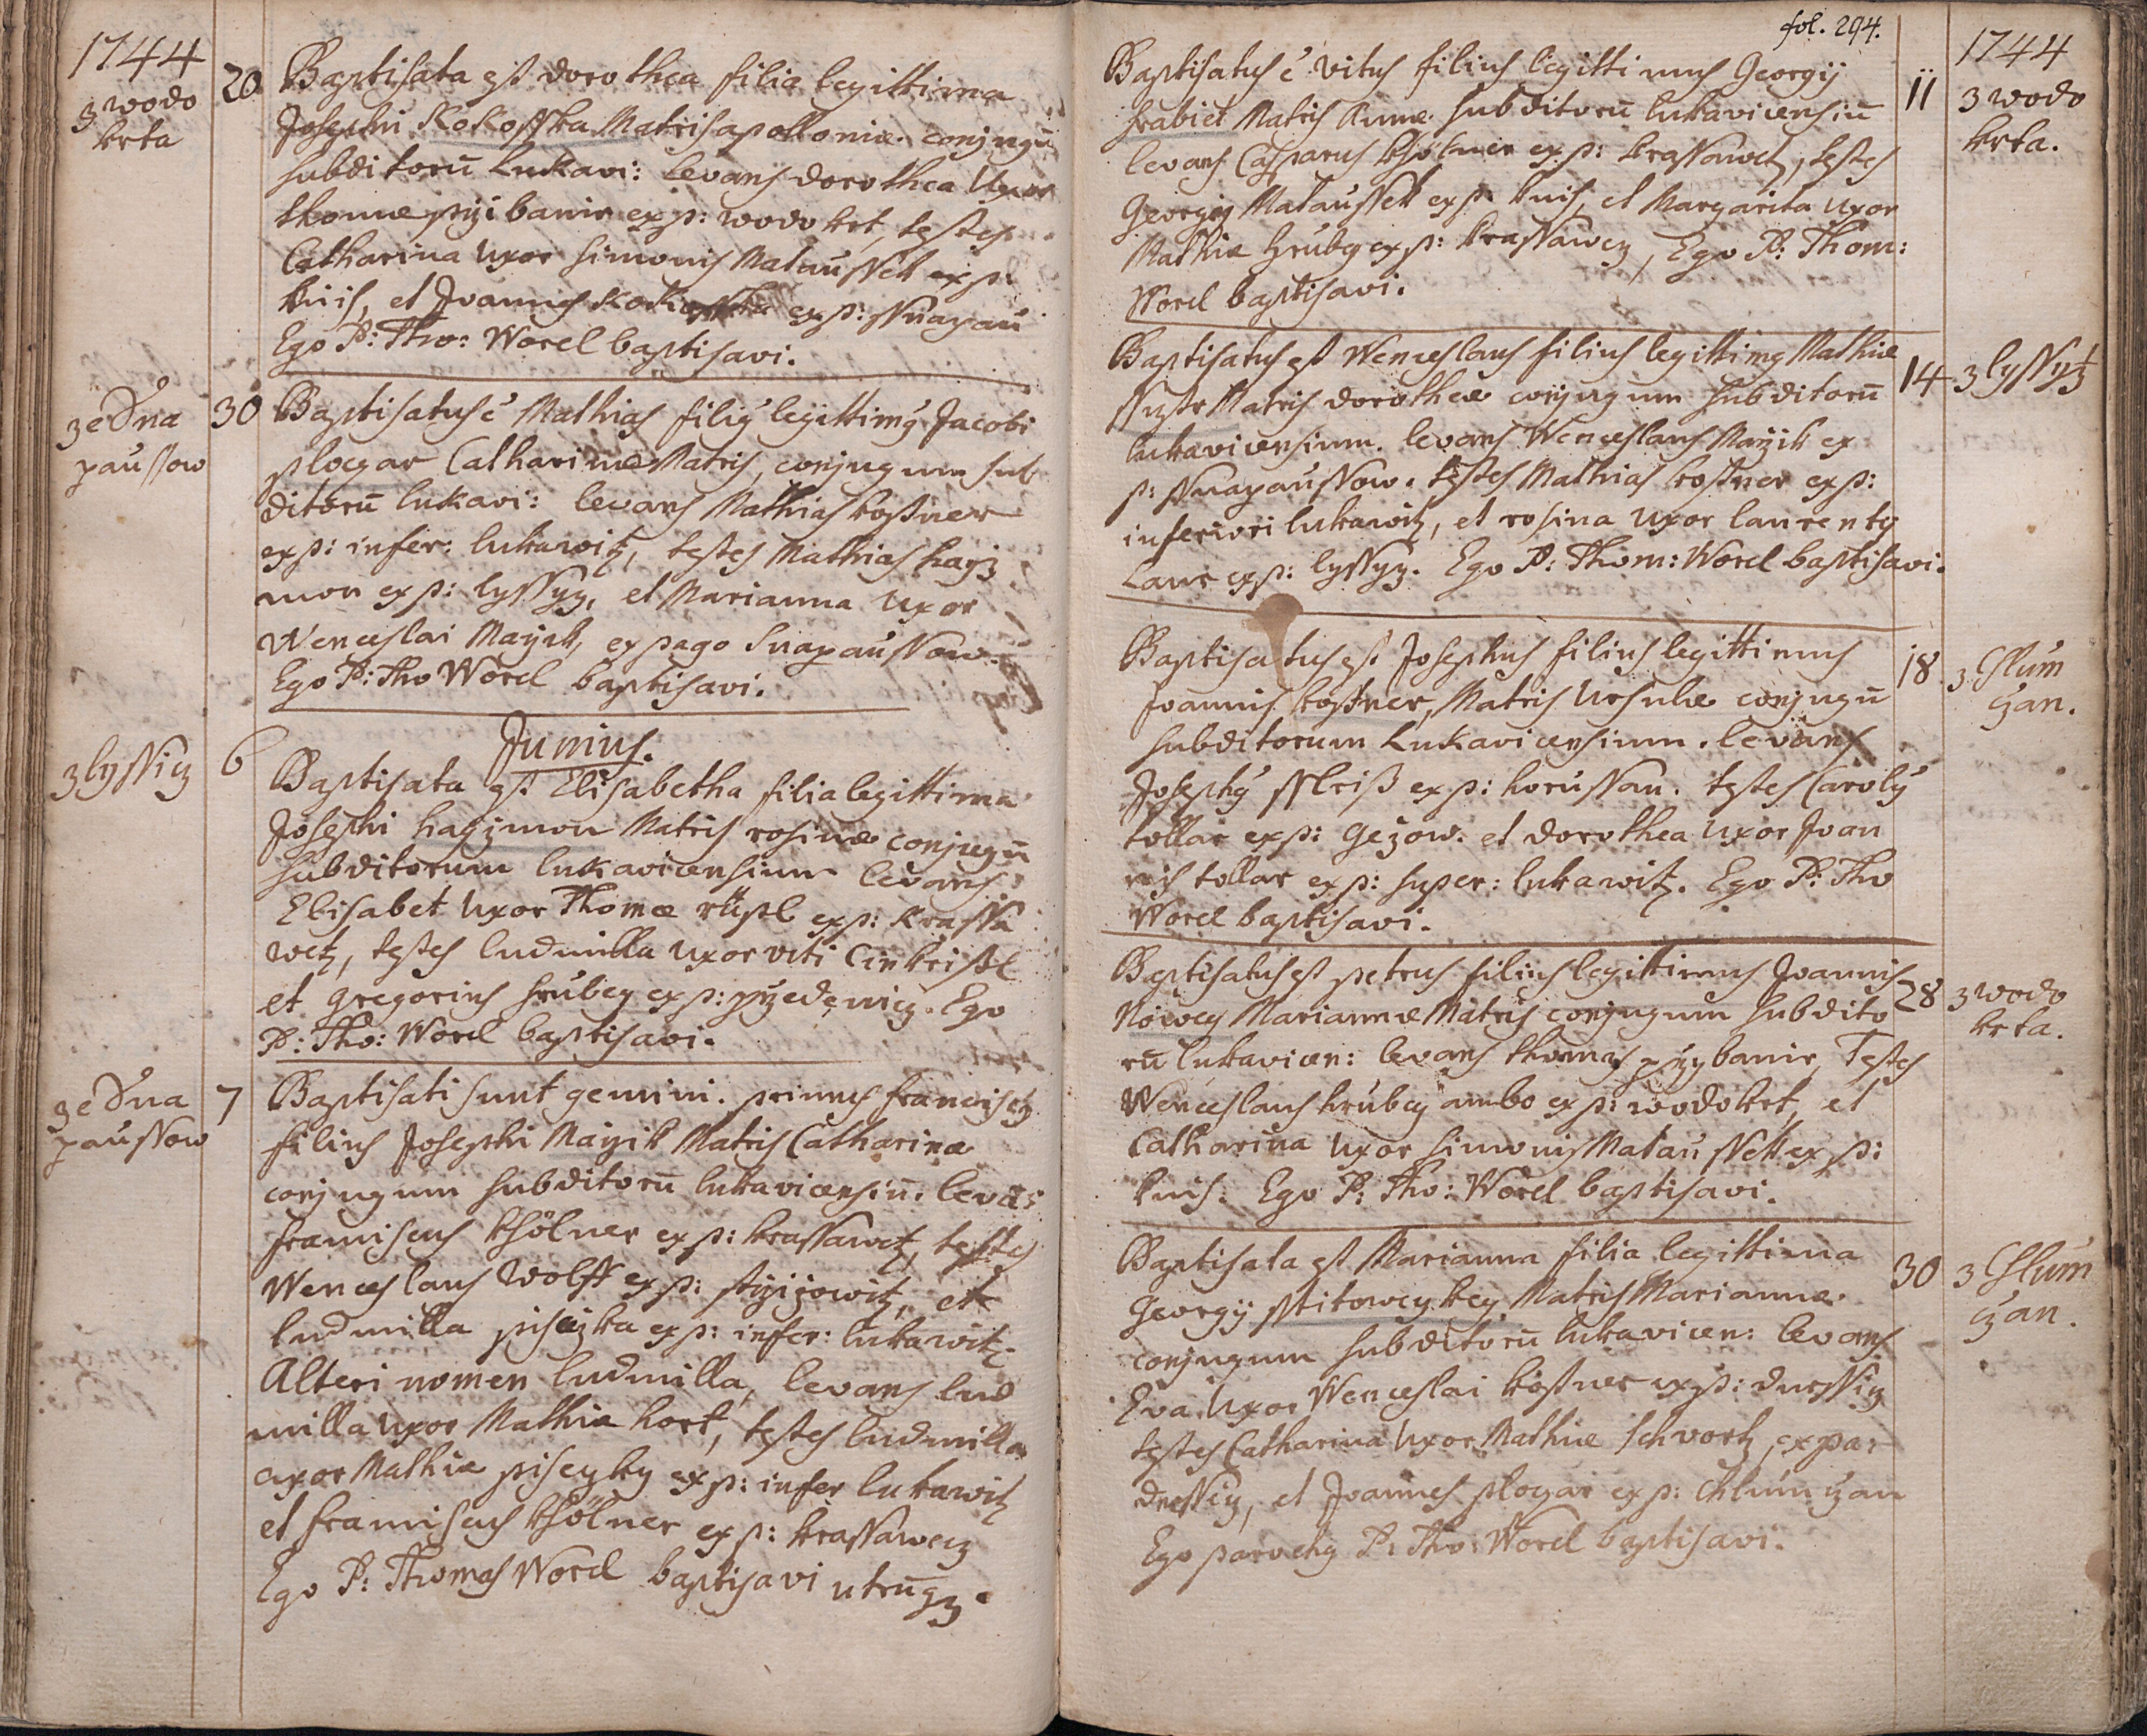 1744
z wodo
krta
20
Baptisata est dorothea filia legittima
Josephi Kokosska Matris apolloniæ conjugū
subditorū Lukavi: levans dorothea Uxor
thomæ przibanir ex p: wodokrt, testes
Catharina Uxor Simonis Mataussek ex p:
kniis, et Joannes exp: Snapau
Ego P: Tho: Worel baptisavi.
ze Sna
paussow
30
Baptisatus e Mathias filiꝰ legittimꝰ Jacobi
plogar Catharinæ Matris, conjugum sub
ditorū lukavi: levans Mathias kostner
exp: infer: lukawitz, testes Mathias hayz
mon ex p: lyssyz, et Marianna Uxor
Wenceslai Mayzik, ex pago Snapaussow.
Ego P: Tho Worel baptisavi.
Junius.
z lyssicz
6
Baptisata est Elisabetha filia legittima
Josephi hayzmon Matris rosinæ conjugū
subditorum lukavicensium levans
Elisabet Uxor Thomæ rüpl exp: krassa
wetz, testes ludmilla uxor viti Cinkristl
et gregorius hrubey exp: przedenicz. Ego
P: Tho: Worel baptisavi.
ze Sna
paussow
7
Baptisati sunt gemini. primus franciscꝰ
filius Josephi Mayzik Matris Catharinæ
conjugum subditorū lukavicensiū. levās
franciscus khölner exp: krassawetz, testes
Wenceslaus Wolff exp: przizowitz, et
ludmilla pisezka exp: infer: lukawitz.
Alteri nomen ludmilla, levans lud
milla uxor Mathiæ hort, testes ludmilla
uxor Mathiæ piseyky exp: infer lukawitz
et franciscus khölner exp: krassawecz
Ego P: Thomas Worel baptisavi utrūqz.
fol. 294.
1744
z wodo
krta.
11
Baptisatus e vitus filius legittimus Georgij
hrabiet Matris Annæ subditorū lukavicensiū
levans Casparus khölner exp: krassawetz, testes
Georgiꝰ Mataussek exp. kniis, et Margarita uxor
Mathiæ hrubey exp: krassawcz, Ego P: Thom:
Worel baptisavi.
14
z lyssytz
Baptisatus est Wenceslaus filius legittimꝰ Mathiæ
Matris dorotheæ conjugum subditorū
lukavicensium. levans Wenceslaus Mayzik ex
p: Snapaussow. testes Mathias kostner exp:
inferiori lukawitz, et rosina uxor laurenty
Laur exp: lyssyz. Ego P: Thom: Worel baptisavi.
18
z Chlum
czan.
Baptisatus est Josephus filius legittimus
Joannis kostner, Matris Ursulæ conjugū
subditorum Lukavicensium. levans
Josephꝰ exp: horussan. testes Carolꝰ
tollar exp: Gezow. et dorothea uxor Joan
nis tollar exp: super: lukawitz. Ego P: Tho
Worel baptisavi.
28
z wodo
krta.
Baptisatus est petrus filius legittimus Joannis
Nowey Mariannæ Matris conjugum subdito
rū lukavicen: levans thomas przybanir, Testes
Wenceslaus hrubey ambo exp: wodokrt, et
Catharina uxor Simonis Mataussek exp:
kniis. Ego P: Tho: Worel baptisavi.
30
z Chlum
czan.
Baptisata est Marianna filia legittima
Georgij sstitoweykey Matris Mariannæ
conjugum subditorū lukavicen: levans
Eva Uxor Wenceslai kostner exp: dnessicz
testes Catharina uxor Mathiæ Schvortz, ex pa:
dnessicz, et Joannes plogar exp: Chlumczan
Ego parochꝰ P: Tho: Worel baptisavi.